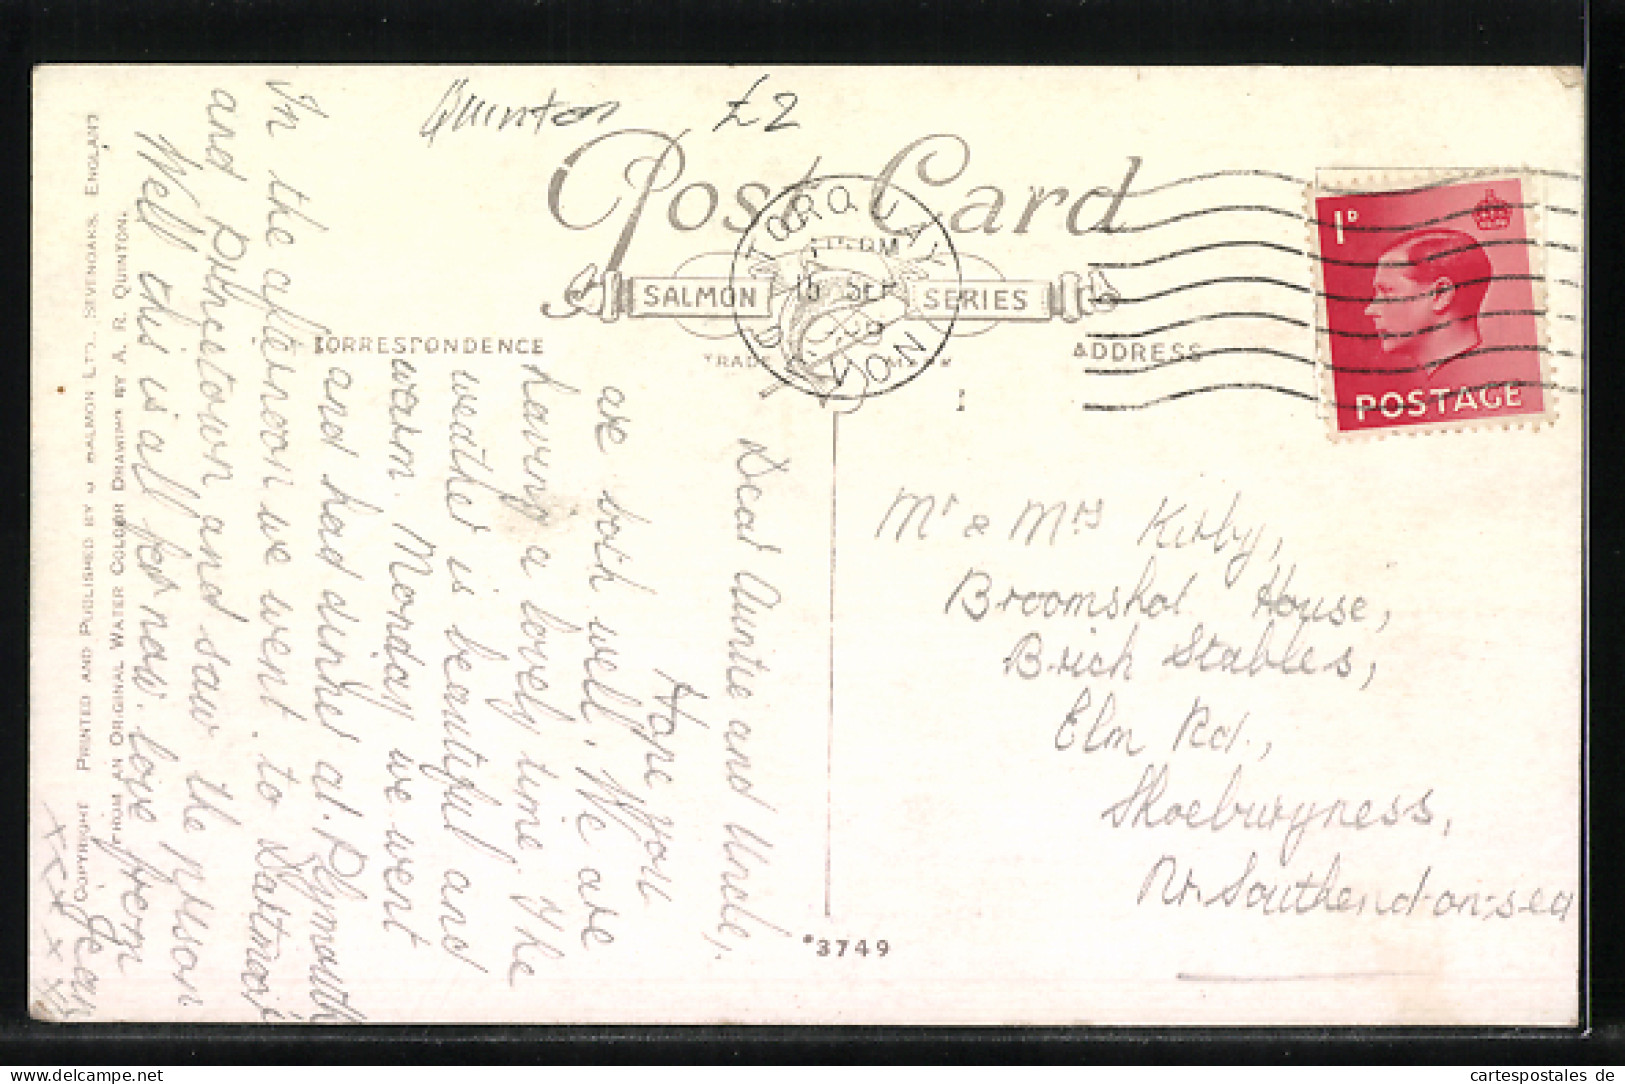 Quinton £2
Post Card
SALMON SERIES
TRADE
CORRESPONDENCE
ADDRESS
TORQUAY
DEVON
15 SEP
1D
POSTAGE
Dear Auntie and Uncle,
Hope you
are both well. We are
having a lovely time. The
weather is beautiful and
warm. Monday we went
and had dinner at Plymouth
In the afternoon we went to Dartmoor
and Princetown and saw the prison
Well this is all for now. love from
Jean
x x x x
© COPYRIGHT PRINTED AND PUBLISHED BY J. SALMON LTD., SEVENOAKS, ENGLAND
FROM AN ORIGINAL WATER COLOUR DRAWING BY A. R. QUINTON.
Mr & Mrs Kirby,
Broomshot House,
Brick Stables,
Elm Rd.,
Shoeburyness,
Nr. Southend-on-sea
*3749
cartespostales de